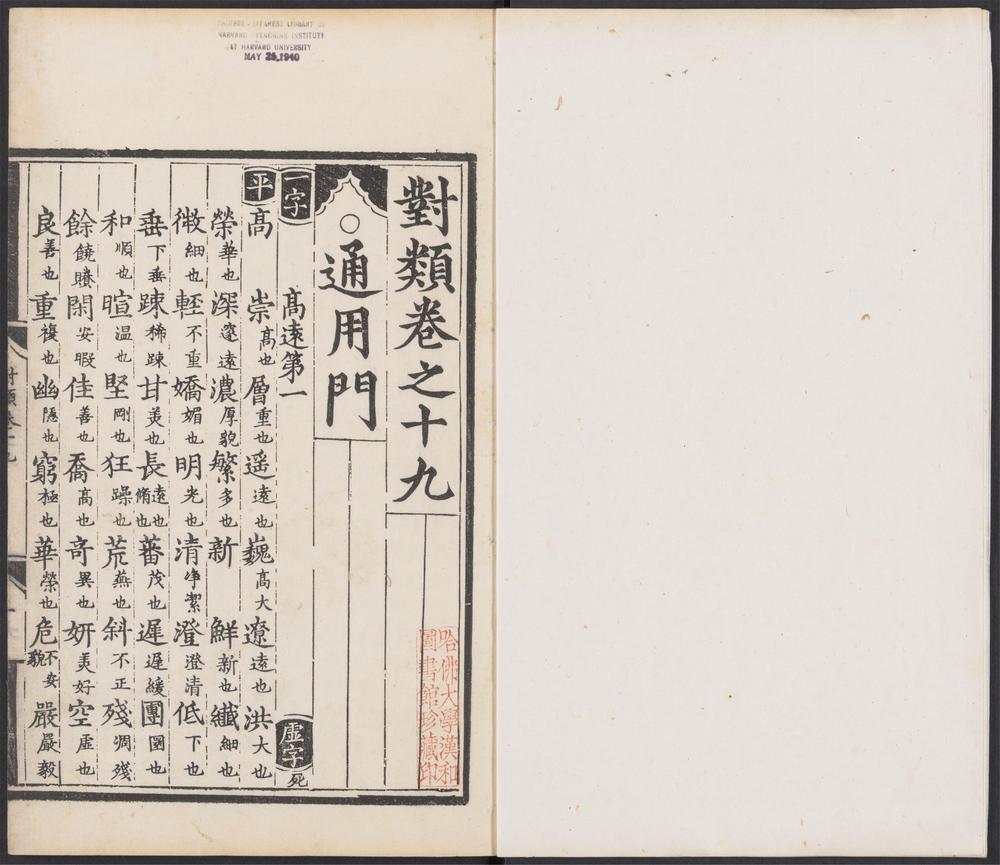 CHINESE-JAPANESE LIBRARY OF
HARVARD-YENCHING INSTITUTE
AT HARVARD UNIVERSITY
MAY 25 1940
對類卷之十九
通用門
一字 高遠第一 虛字死
平 高 崇高也 層重也 遥遠也 巍高大 遼遠也 洪大也
榮華也 深邃遠 濃厚貌 繁多也 新 鮮新也 纖細也
微細也 輕不重 嬌媚也 明光也 清净潔 澄澄清 低下也
垂下垂 踈稀踈 甘美也 長遠也脩也 蕃茂也 遲遲緩 團圓也
和順也 暄温也 堅剛也 狂躁也 荒蕪也 斜不正 殘凋殘
餘饒賸 閑安暇 佳善也 喬高也 奇異也 妍美好 空虛也
良善也 重複也 幽隱也 窮極也 華榮也 危不安貌 嚴嚴毅
哈佛大學漢和
圖書館珍藏印